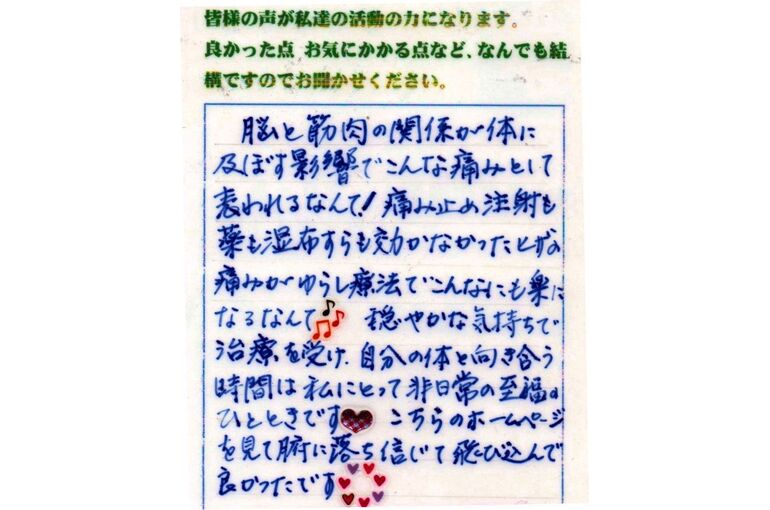 皆様の声が私達の活動の力になります。
良かった点 お気にかかる点など、なんでも結
構ですのでお聞かせください。
脳と筋肉の関係が体に
及ぼす影響でこんな痛みとして
表われるなんて！痛み止め注射も
薬も湿布すらも効力がなかったヒザの
痛みがゆらし療法でこんなにも楽に
なるなんて 穏やかな気持ちで
治療を受け、自分の体と向き合う
時間は私にとって非日常の至福の
ひとときです こちらのホームページ
を見て腑に落ち信じて飛び込んで
良かったです